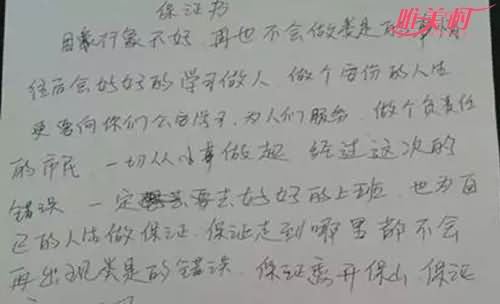 保证书
唯美村
因家行象不好，再也不会做类是的事情
往后会好好的学习做人，做个安份的人生
更要向你们公安学习，为人们服务，做个负责任
的市民 一切从小事做起 经过这次的
错误 一定要去好好的上班，也为自
己的人生做保证，保证走到哪里都不会
再出现类是的错误，保证离开保山，保证